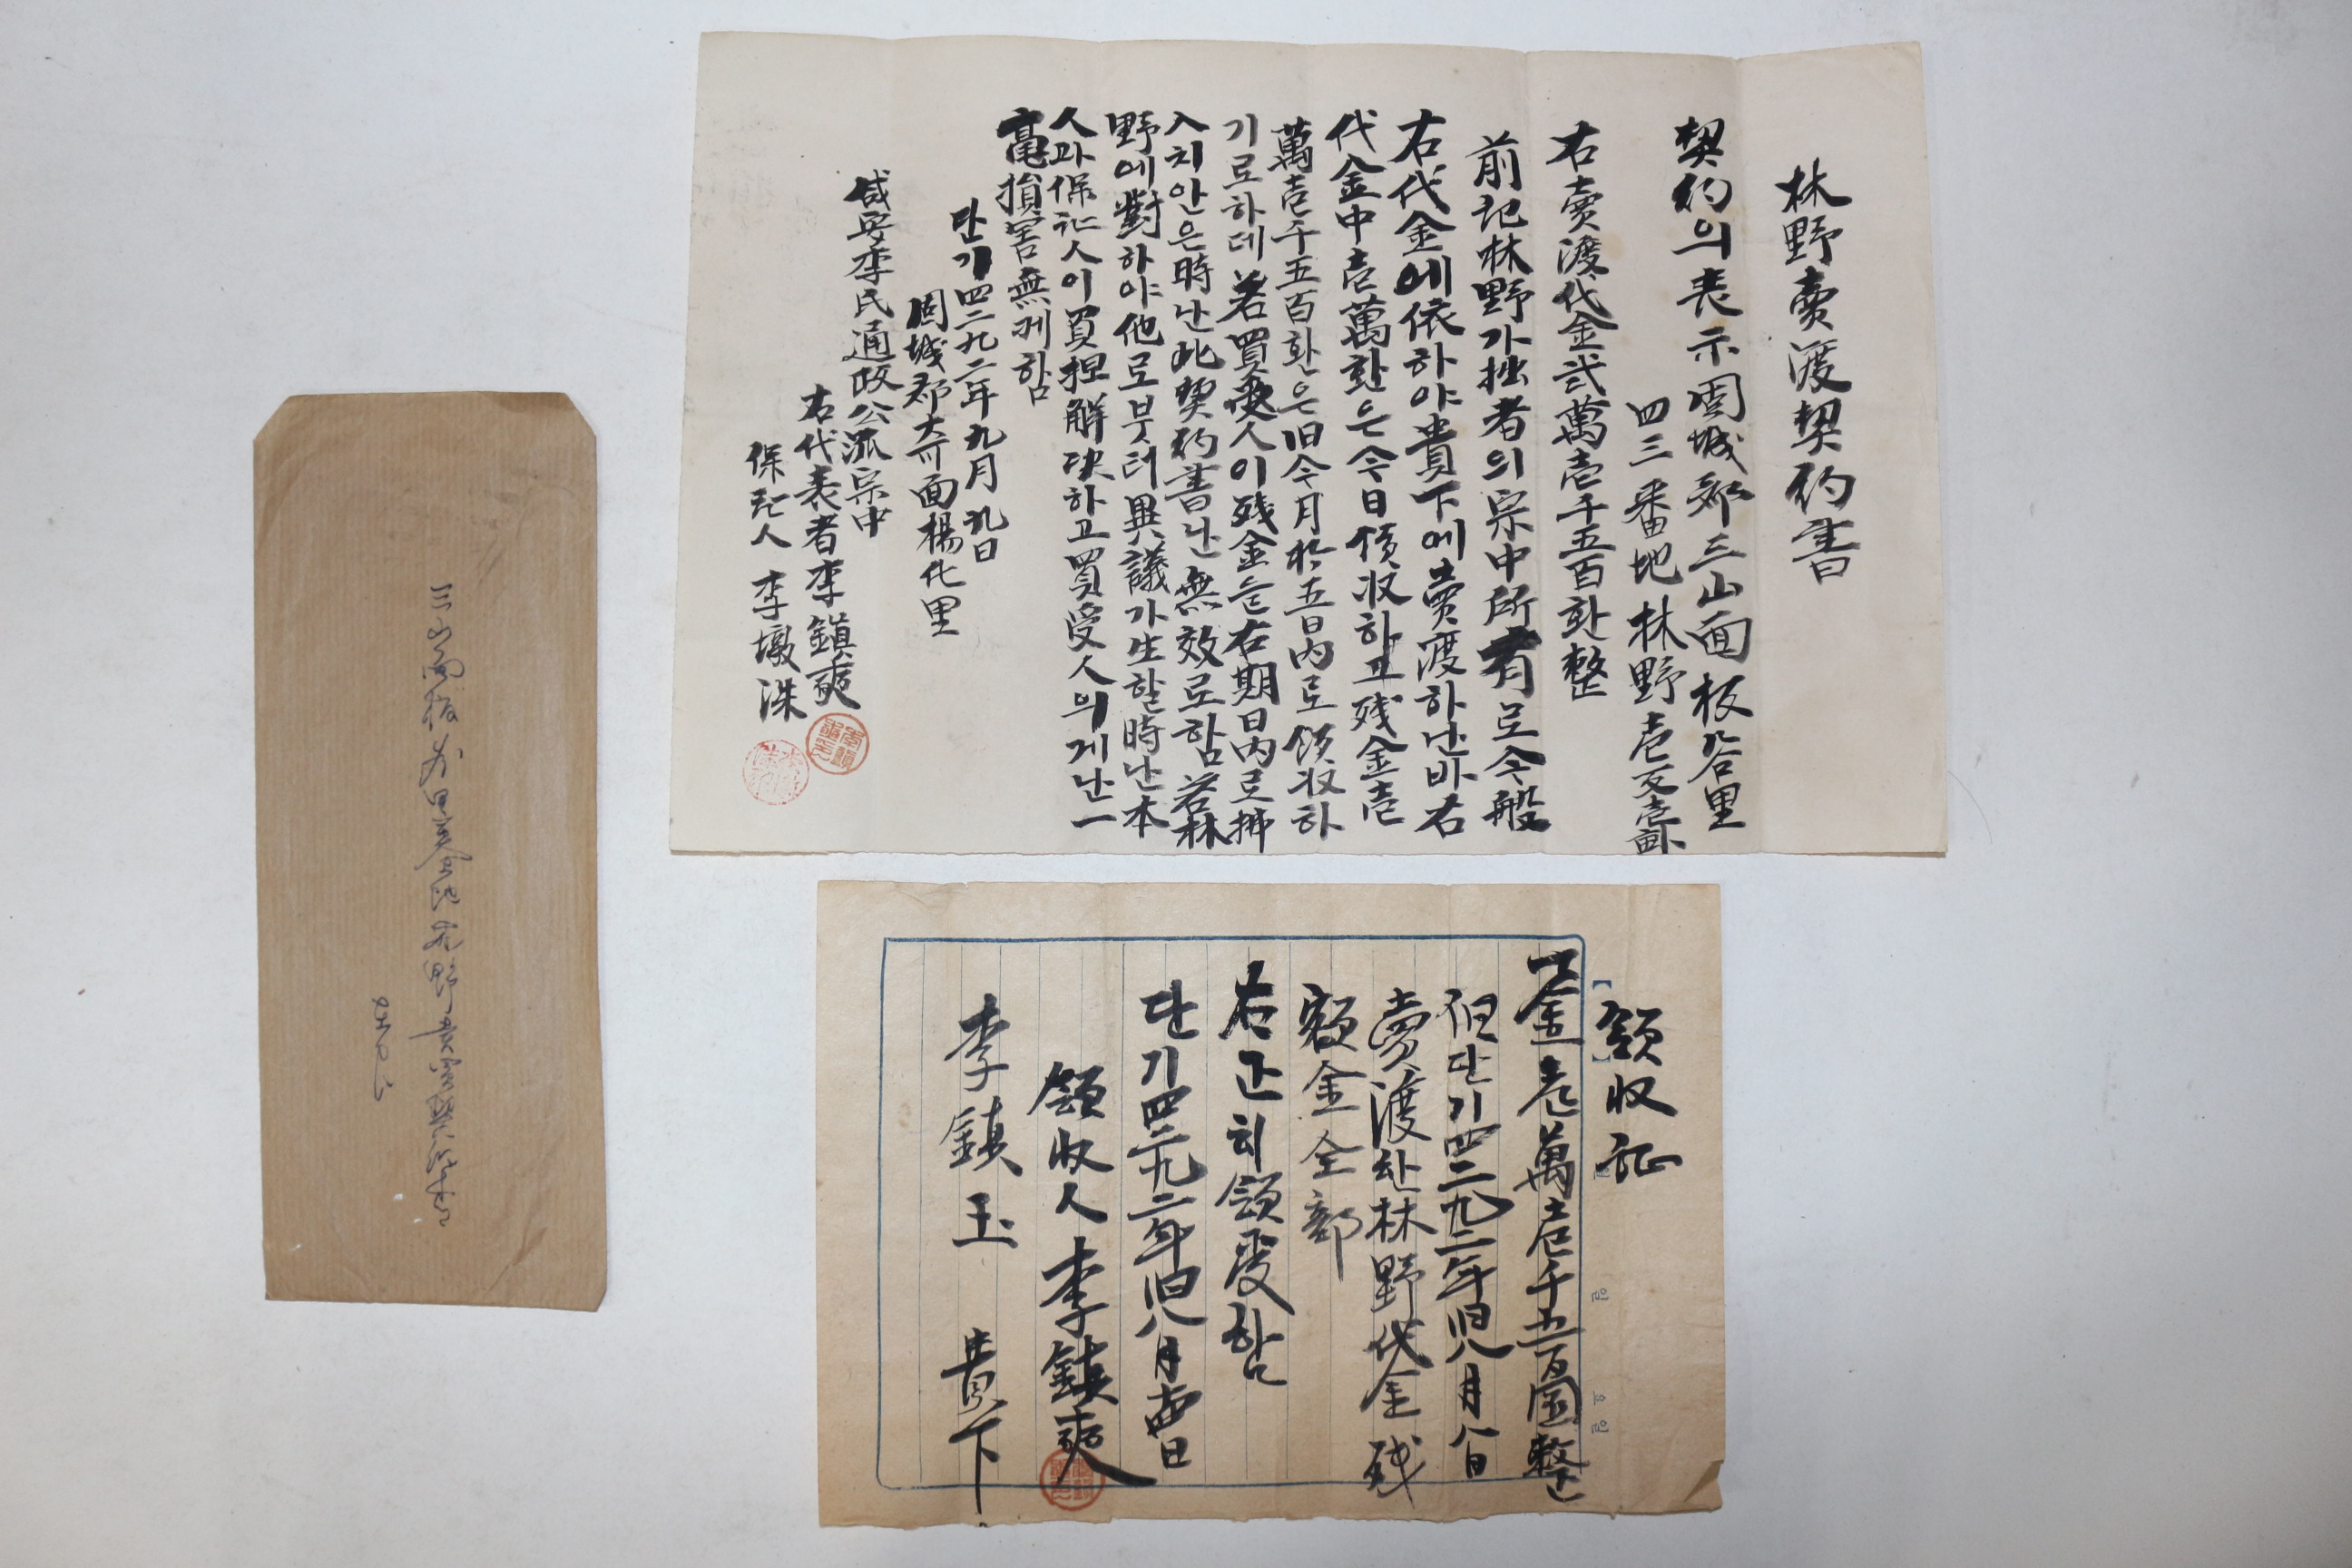 林野賣渡契約書
契約의表示固城郡三山面板谷里
四三番地林野壱反壱畝
右賣渡代金弐萬壱千五百환整
前記林野가拙者의宗中所有로今般
右代金에依하야貴下에賣渡하난바右
代金中壱萬환은今日領收하고残金壱
萬壱千五百환은旧今月於五日內로領收하
기로하데若買受人이残金을右期日內로押
入치안은時난此契約書난無效로함若林
野에對하야他로부터異議가生할時난本
人과保証人이負担解决하고買受人의게난一
毫損害無케함
단기四二九二年九月九日
固城郡大可面楊化里
咸安李氏通政公派宗中
右代表者李鎮奭
保証人 李墩洙
領收証
一金壱萬壱千五百圓整
但단기四二九二年旧八月八日
賣渡한林野代金残
額金全部
右正히領受함
단기四二九二年旧八月 日
領收人李鎮奭
李鎮玉 貴下
三山面板谷里